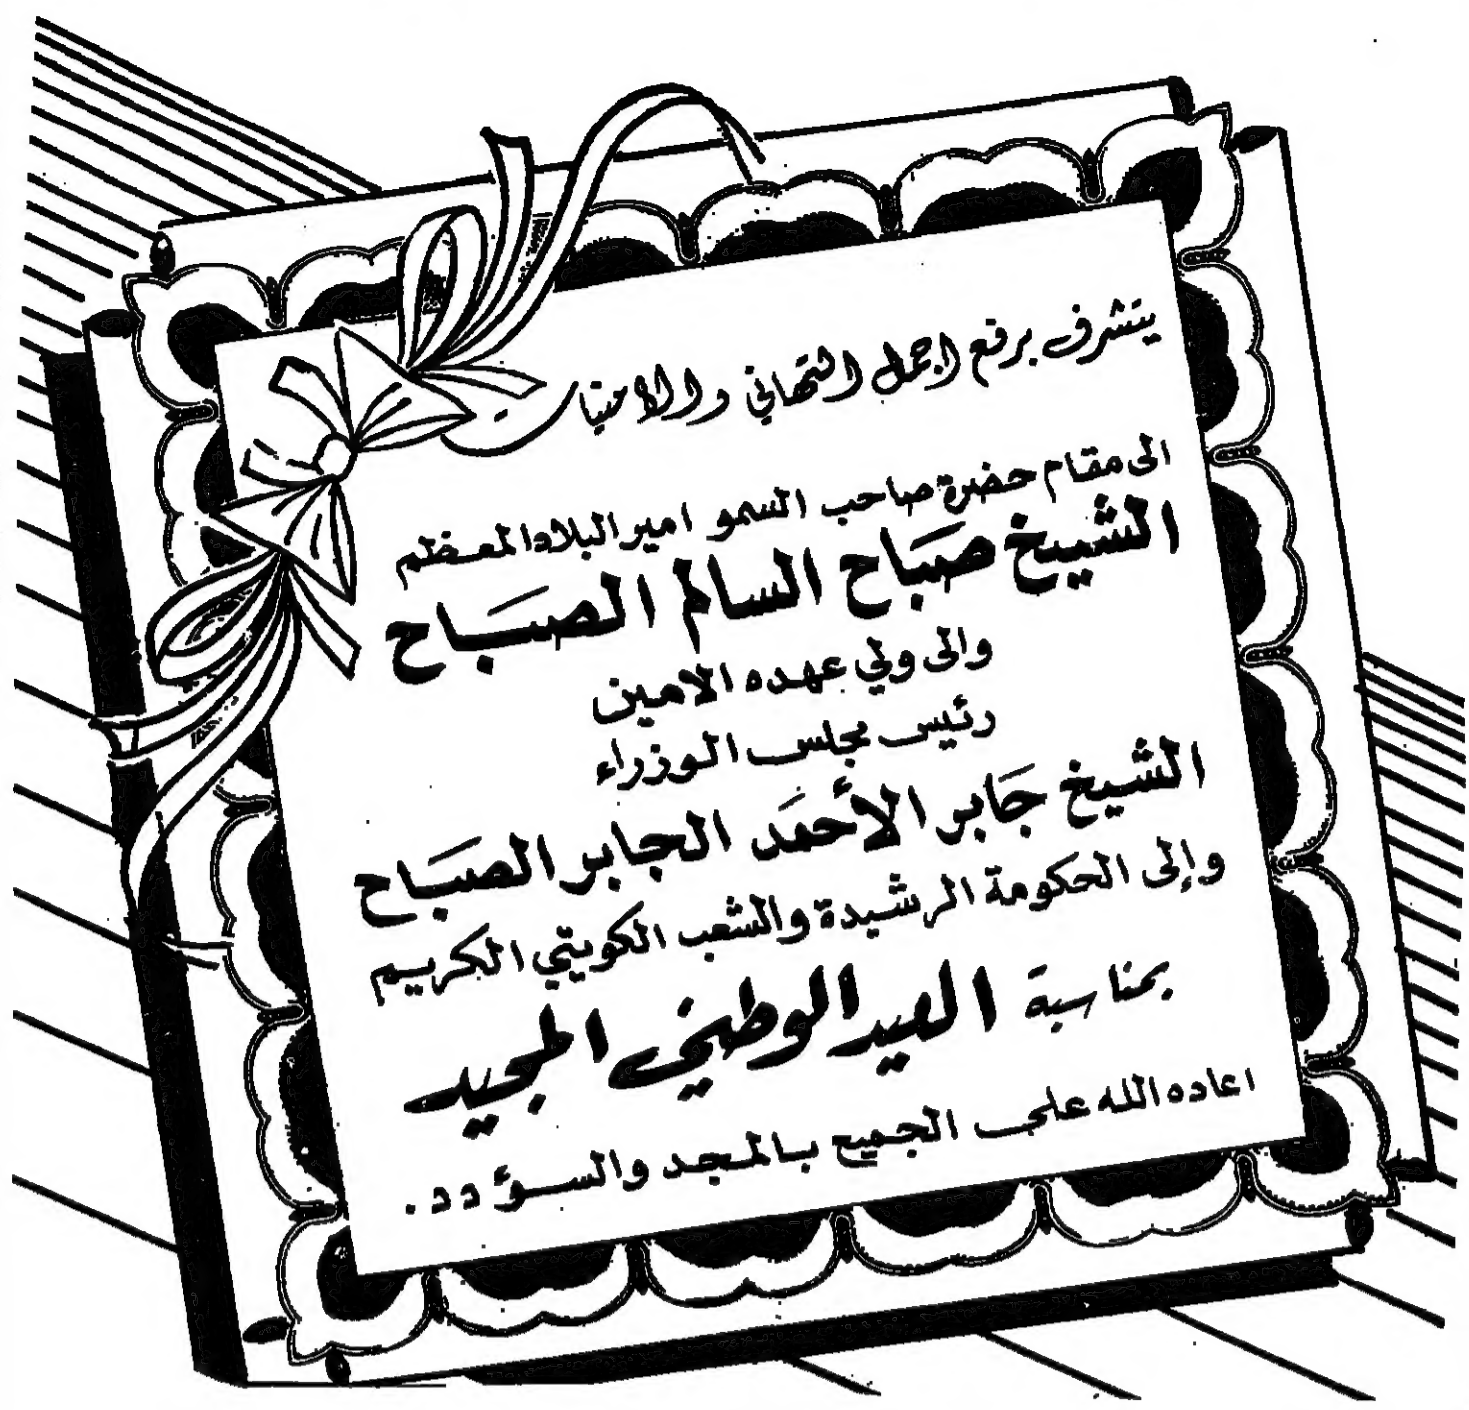 يتشرف برفع اجمل التهاني والامنيات
الى مقام حضرة صاحب السمو امير البلاد المعظم
الشيخ صباح السالم الصباح
والى ولي عهده الامين
رئيس مجلس الوزراء
الشيخ جابر الأحمد الجابر الصباح
وإلى الحكومة الرشيدة والشعب الكويتي الكريم
بمناسبة العيد الوطني المجيد
اعاده الله على الجميع بالمجد والسؤدد.